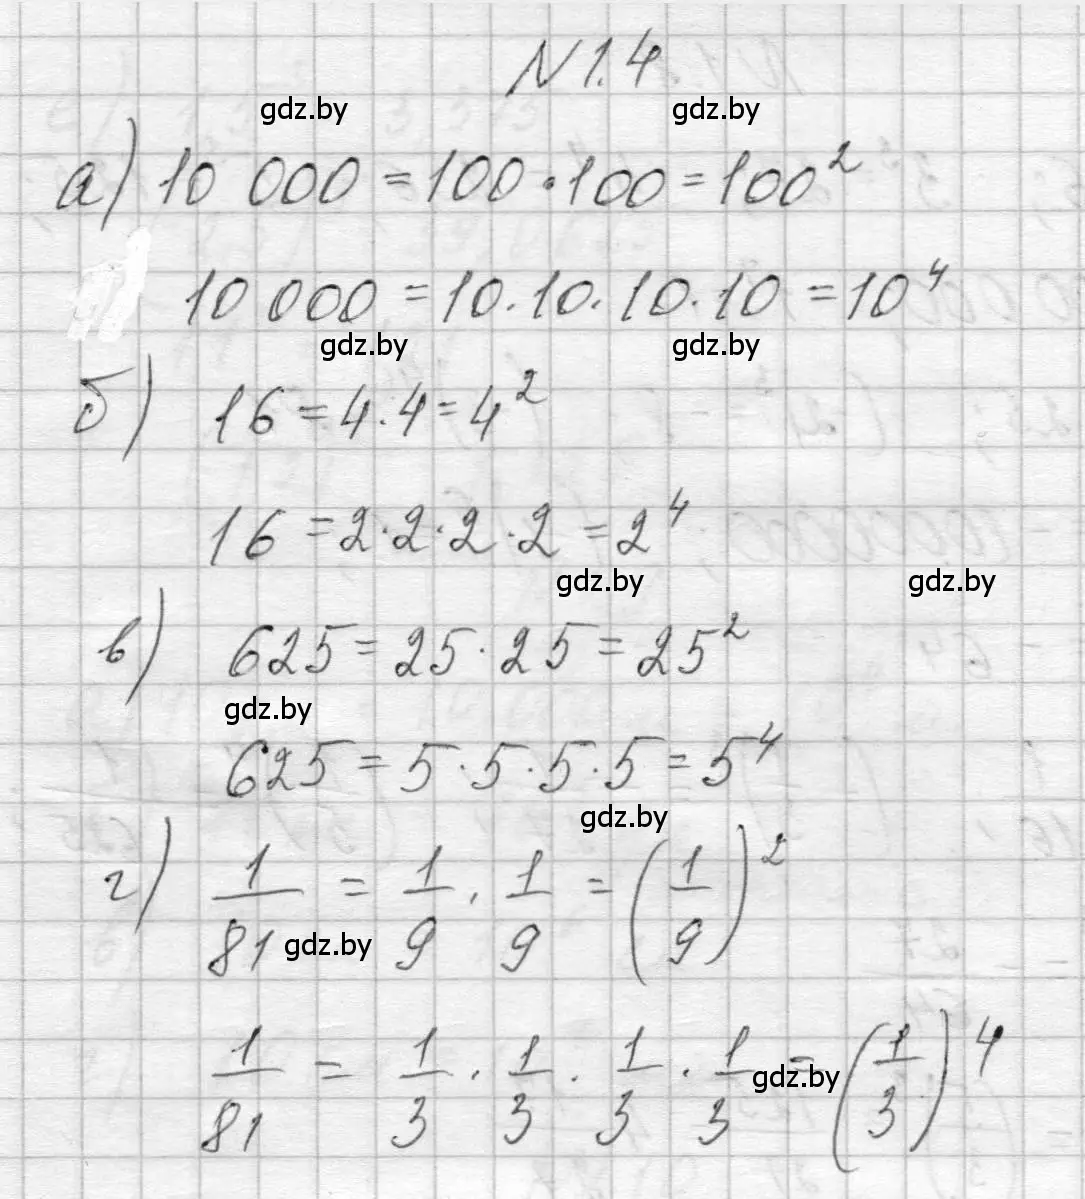 N 1.4
gdz.by gdz.by
а) 10 000 = 100 · 100 = 100²
10 000 = 10 · 10 · 10 · 10 = 10⁴
gdz.by gdz.by
б) 16 = 4 · 4 = 4²
16 = 2 · 2 · 2 · 2 = 2⁴
gdz.by gdz.by
в) 625 = 25 · 25 = 25²
gdz.by
625 = 5 · 5 · 5 · 5 = 5⁴
gdz.by
г) 1/81 = 1/9 · 1/9 = (1/9)²
gdz.by
1/81 = 1/3 · 1/3 · 1/3 · 1/3 = (1/3)⁴
gdz.by